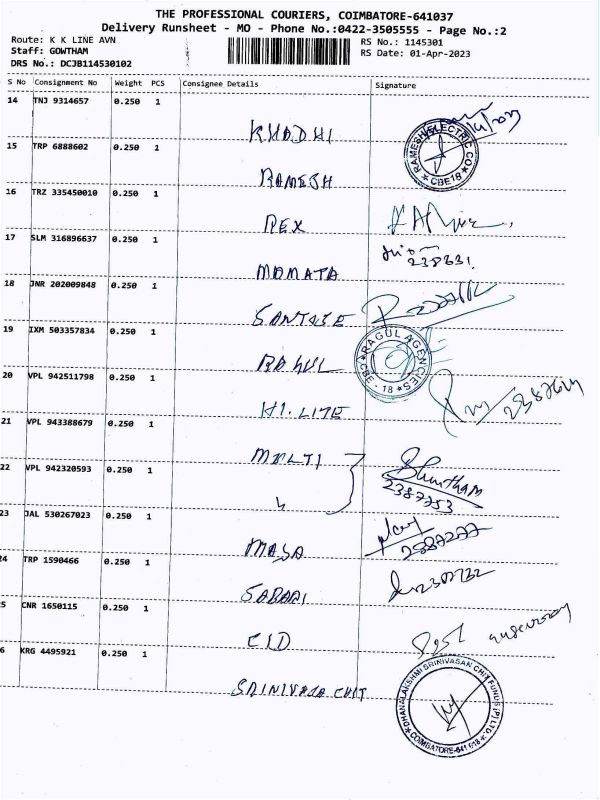 THE PROFESSIONAL COURIERS, COIMBATORE-641037
Delivery Runsheet - MO - Phone No.:0422-3505555 - Page No.:2
Route: K K LINE AVN
RS No.: 1145301
Staff: GOWTHAM
RS Date: 01-Apr-2023
DRS No.: DCJB114530102
S No Consignment No Weight PCS Consignee Details Signature
14 TNJ 9314657 0.250 1
KHADHI
RAMESH ELECTRIC CO
CBE 18
15 TRP 6888602 0.250 1
RAMESH
16 TRZ 335450010 0.250 1
REX
17 SLM 316896637 0.250 1
MAMATA
238631
18 JNR 202009848 0.250 1
SANTOSE
19 IXM 503357834 0.250 1
RAHUL
RAGUL AGENCIES
CBE - 18
20 VPL 942511798 0.250 1
HI.LITE
21 VPL 943388679 0.250 1
MULTI
22 VPL 942320593 0.250 1
Bhuntham
2387753
23 JAL 530267023 0.250 1
MASA
2587277
24 TRP 1590466 0.250 1
SABARI
25 CNR 1650115 0.250 1
CID
26 KRG 4495921 0.250 1
SRINIVASA CHIT
DHANALAKSHMI SRINIVASAN CHIT FUNDS (P) LTD.
COIMBATORE-641 018